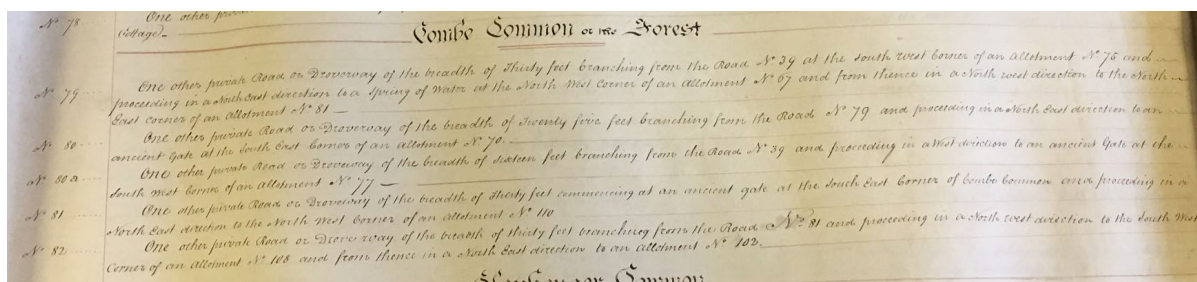 Nº 78 One other private
Cottage.
Combe Common or the Forest
Nº 79 One other private Road or Droveway of the breadth of Thirty feet branching from the Road Nº 39 at the South West Corner of an Allotment Nº 75 and
proceeding in a North East direction to a Spring of Water at the North West Corner of an Allotment Nº 67 and from thence in a North West direction to the North
East Corner of an Allotment Nº 81
Nº 80 One other private Road or Droveway of the breadth of Twenty five feet branching from the Road Nº 79 and proceeding in a North East direction to an
ancient Gate at the South East Corner of an allotment Nº 70.
Nº 80a One other private Road or Droveway of the breadth of Sixteen feet branching from the Road Nº 39 and proceeding in a West direction to an ancient Gate at the
South West Corner of an Allotment Nº 77
Nº 81 One other private Road or Droveway of the breadth of Thirty feet commencing at an ancient gate at the South East Corner of Combe Common and proceeding in a
North East direction to the North West Corner of an Allotment Nº 110
Nº 82 One other private Road or Drove way of the breadth of thirty feet branching from the Road Nº 81 and proceeding in a North West direction to the South West
Corner of an Allotment Nº 108 and from thence in a North East direction to an allotment Nº 102.
Common